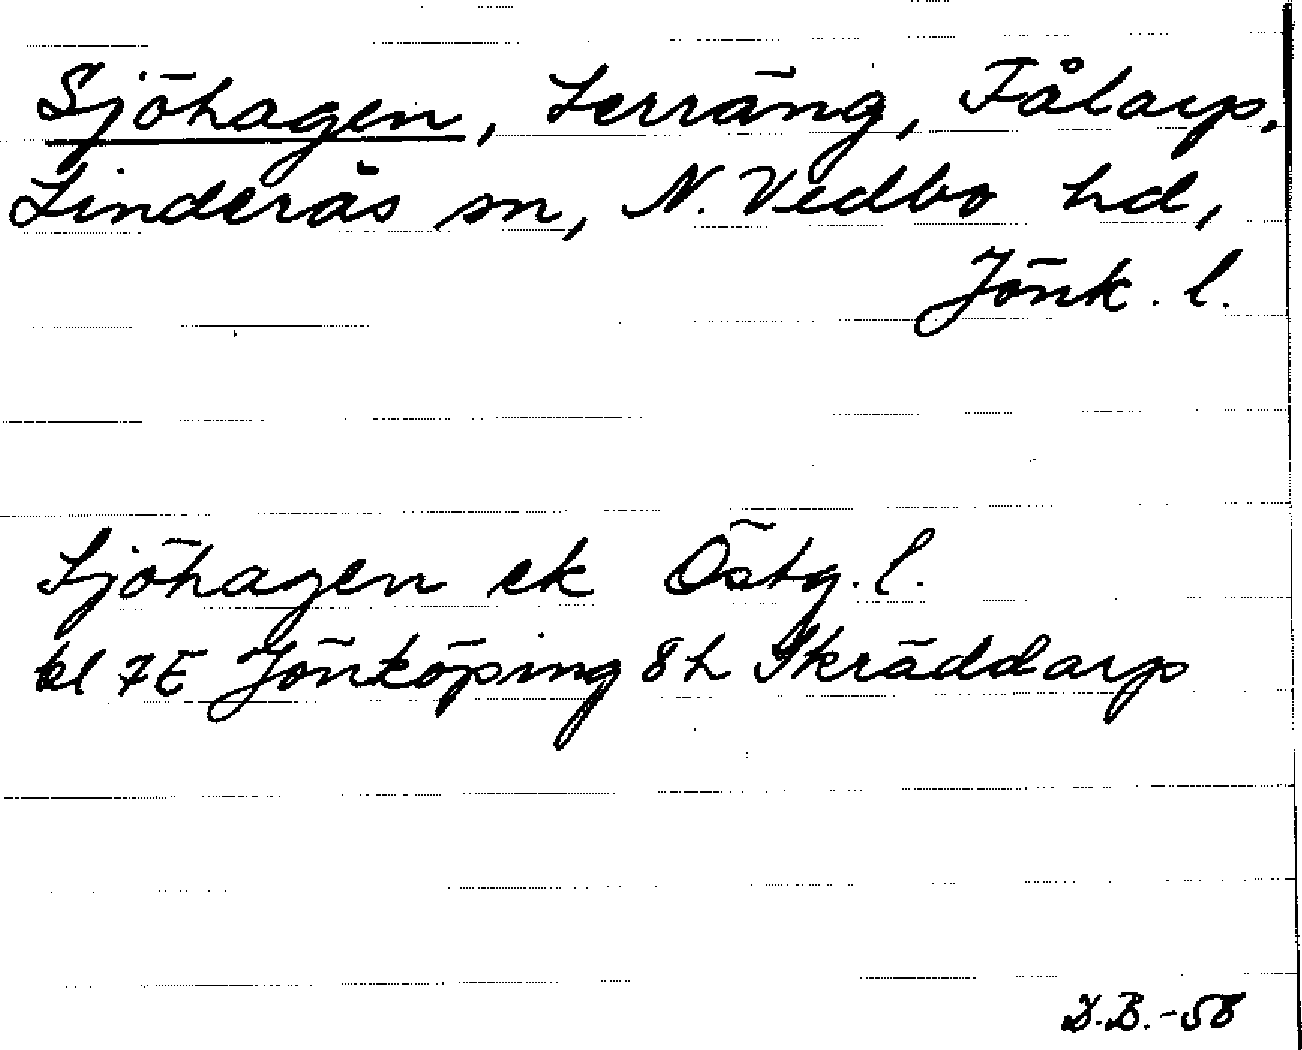 Sjöhagen, Terräng, Fålarp.
Linderås sn, N. Vedbo hd,
Jönk. l.
Sjöhagen ek Östg. l.
bl 7E Jönköping 8h Skräddarp
D.B.-58